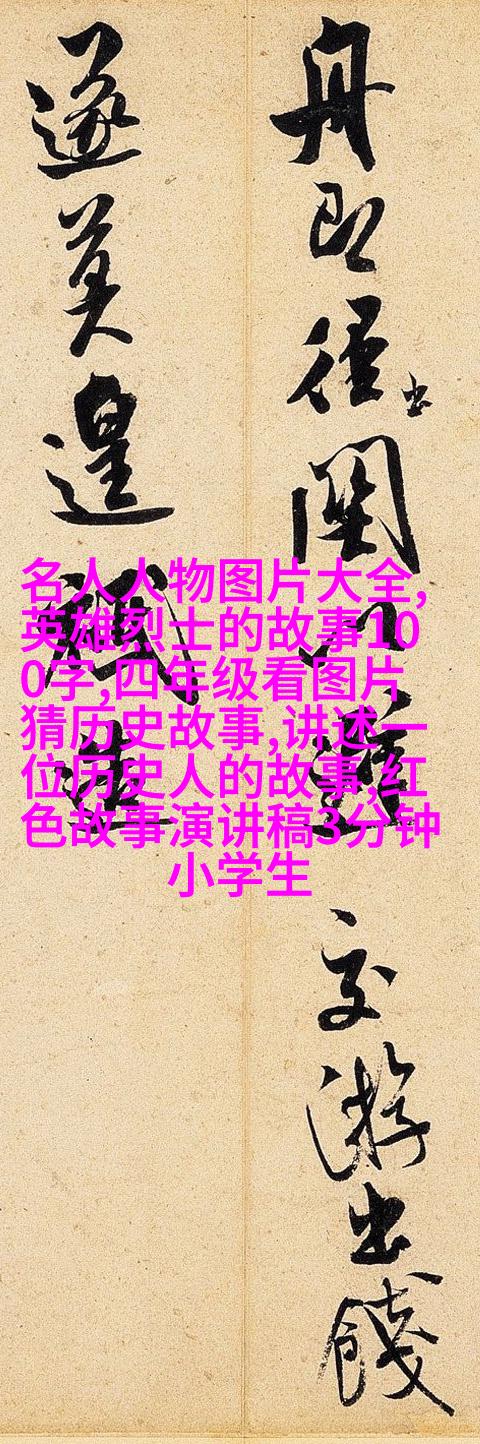 舟即徑出關以避交游出餞
遂莫遑
名人人物图片大全,
英雄烈士的故事10
0字,四年级看图片
猜历史故事,讲述一
位历史人的故事,红
色故事演讲稿3分钟
小学生